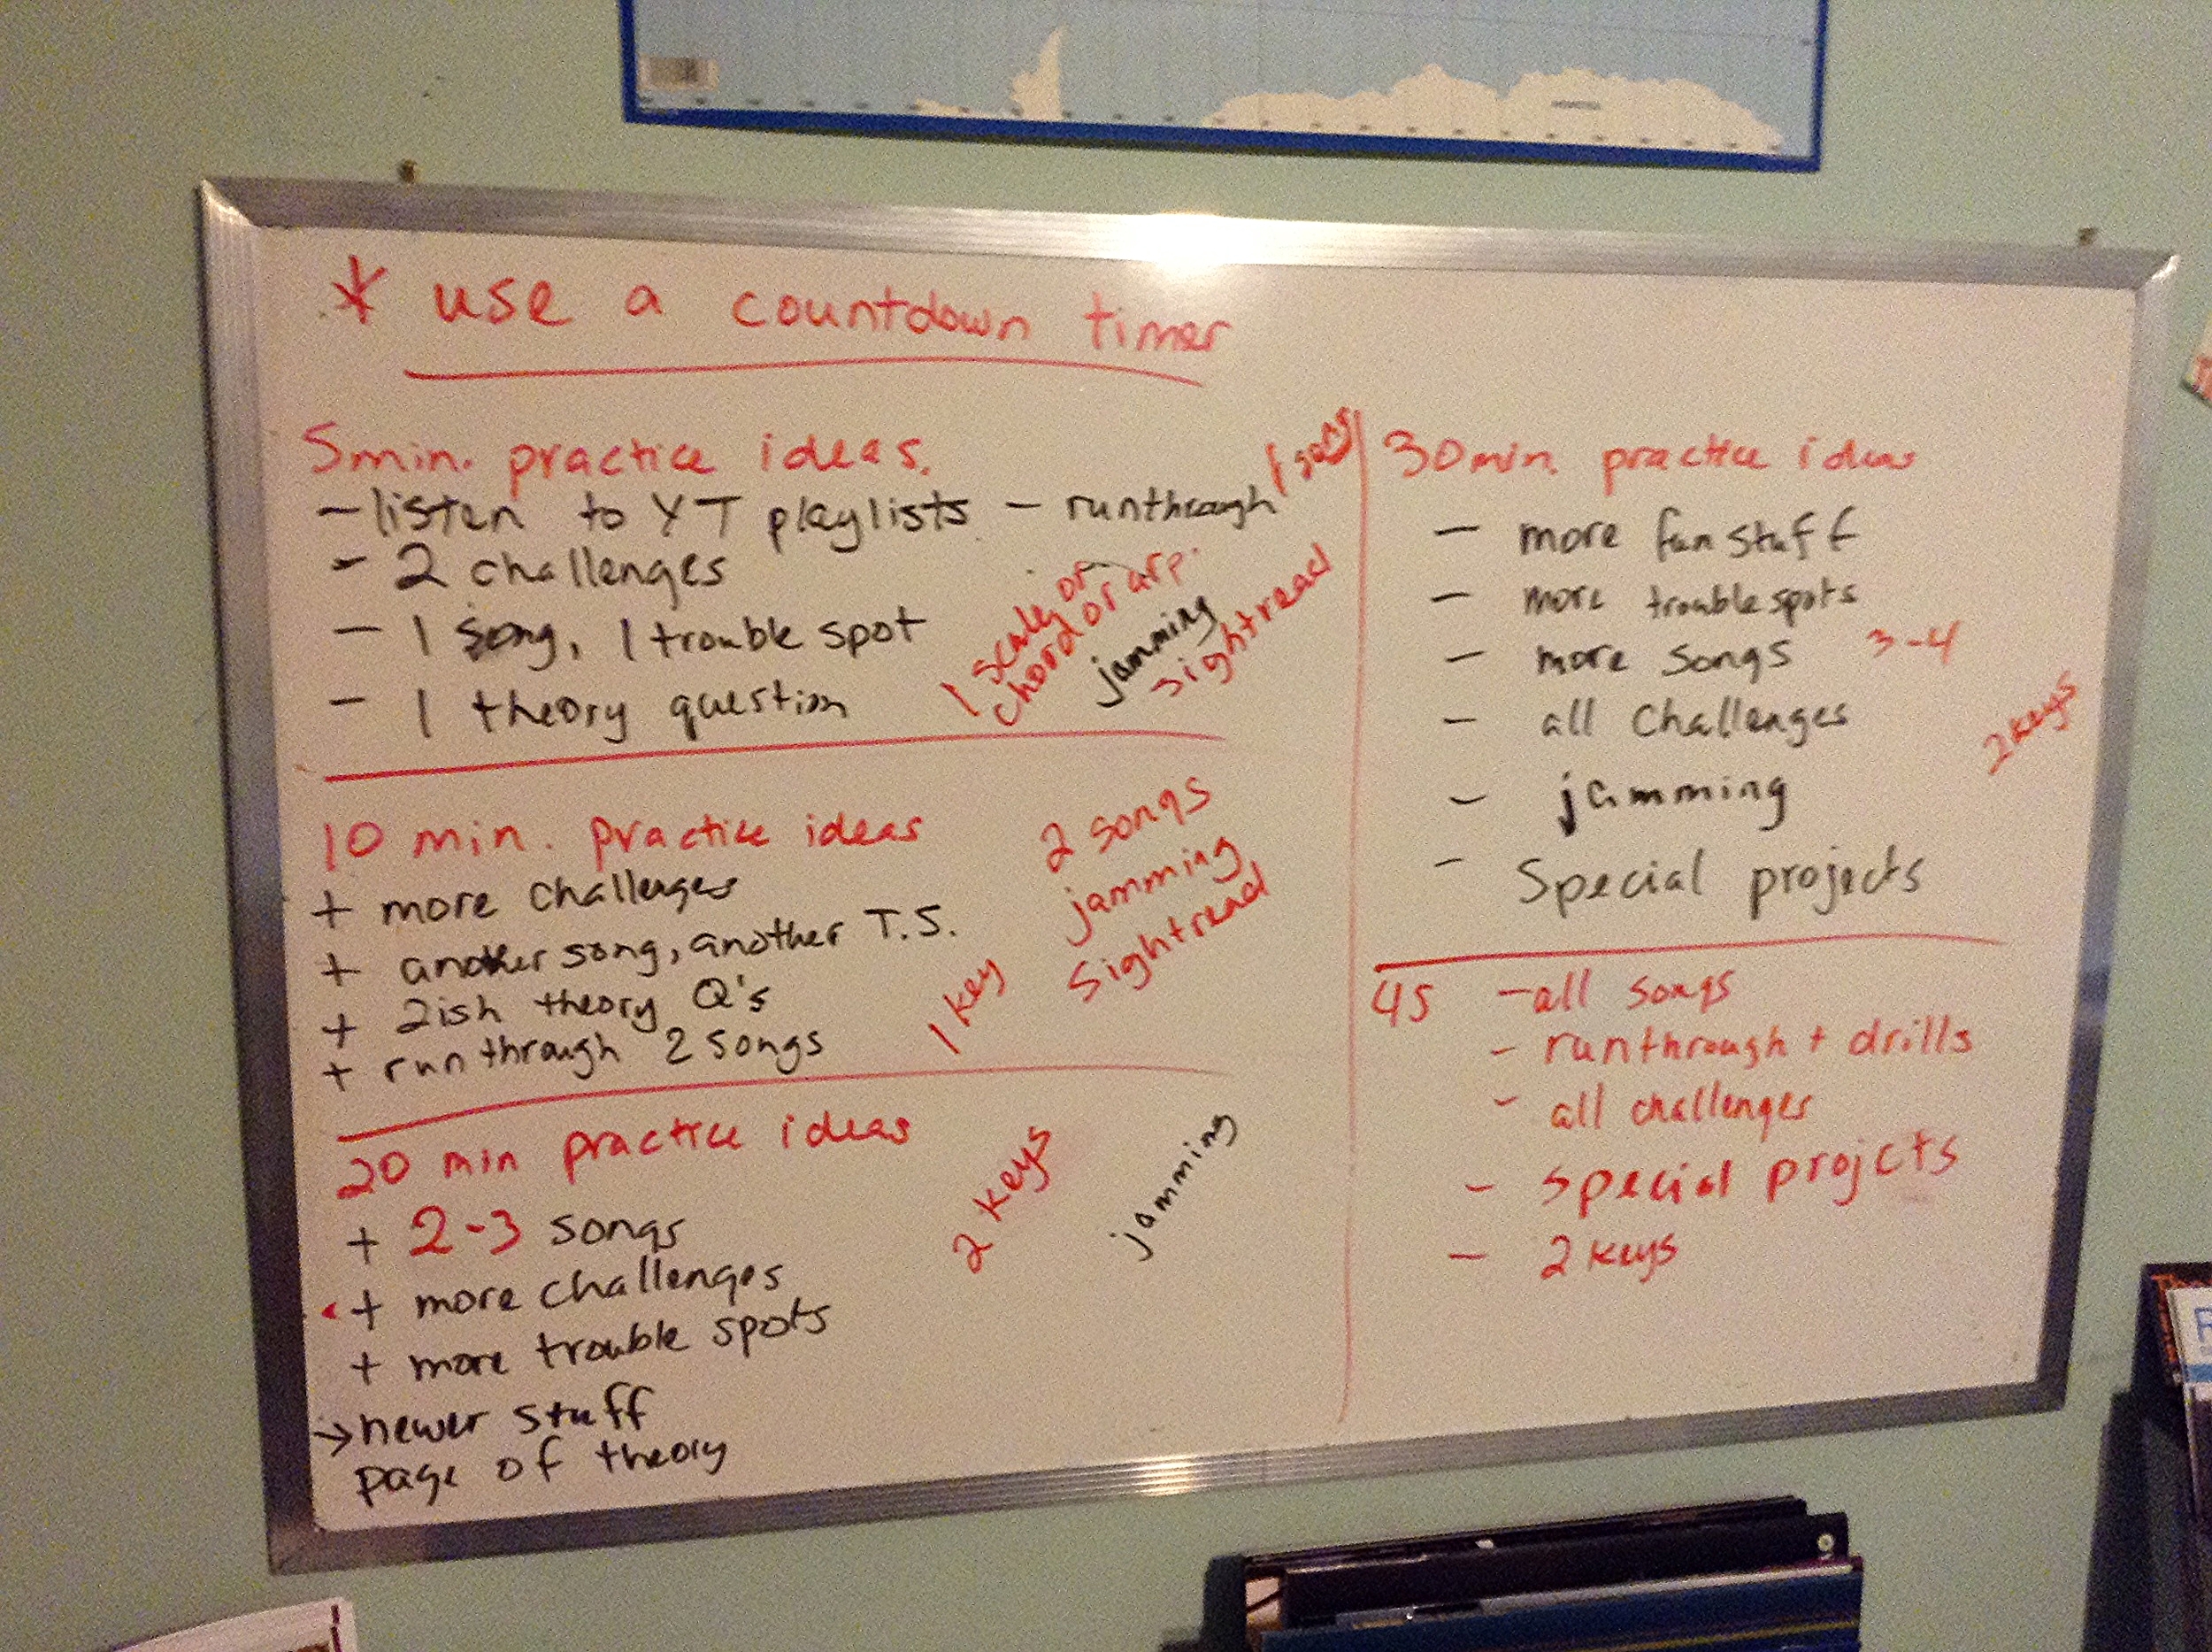 * use a countdown timer
5min. practice ideas.
- listen to YT playlists - runthrough 1 song
- 2 challenges
- 1 song, 1 trouble spot
- 1 theory question
1 scale, or
chord or arp.
jamming
sightread
10 min. practice ideas
+ more challenges
+ another song, another T.S.
+ 2ish theory Q's
+ run through 2 songs
1 key
2 songs
jamming
sightread
20 min practice ideas
+ 2-3 songs
+ more challenges
+ more trouble spots
→ newer stuff
page of theory
2 keys
jamming
30min. practice ideas
- more fun stuff
- more trouble spots
- more songs 3-4
- all challenges
- jamming
- special projects
2 keys
45 - all songs
- runthrough + drills
- all challenges
- special projcts
- 2 keys